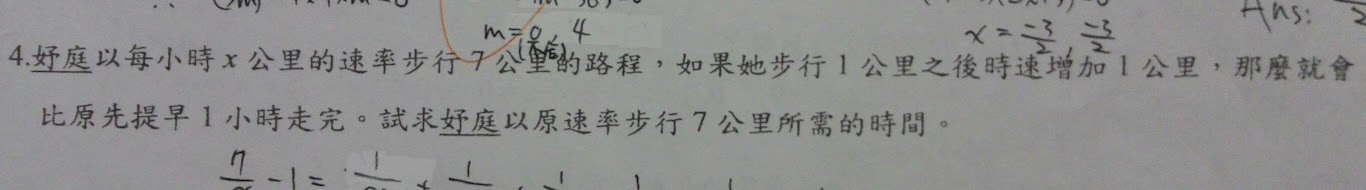 m = 0, 4
(不合)
x = -3/2, -3/2
Ans:
4.妤庭以每小時 x 公里的速率步行 7 公里的路程，如果她步行 1 公里之後時速增加 1 公里，那麼就會
比原先提早 1 小時走完。試求妤庭以原速率步行 7 公里所需的時間。
7/x - 1 =